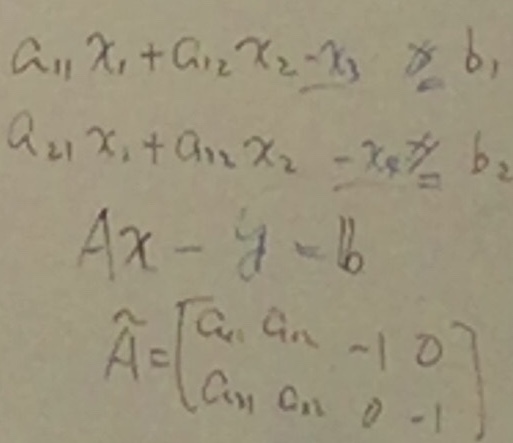 a₁₁ x₁ + a₁₂ x₂ - x₃ ≥ = b₁
a₂₁ x₁ + a₂₂ x₂ - x₄ ≥ = b₂
Ax - y = b
Ã = [a₁₁ a₁₂ -1 0
a₂₁ a₂₂ 0 -1]